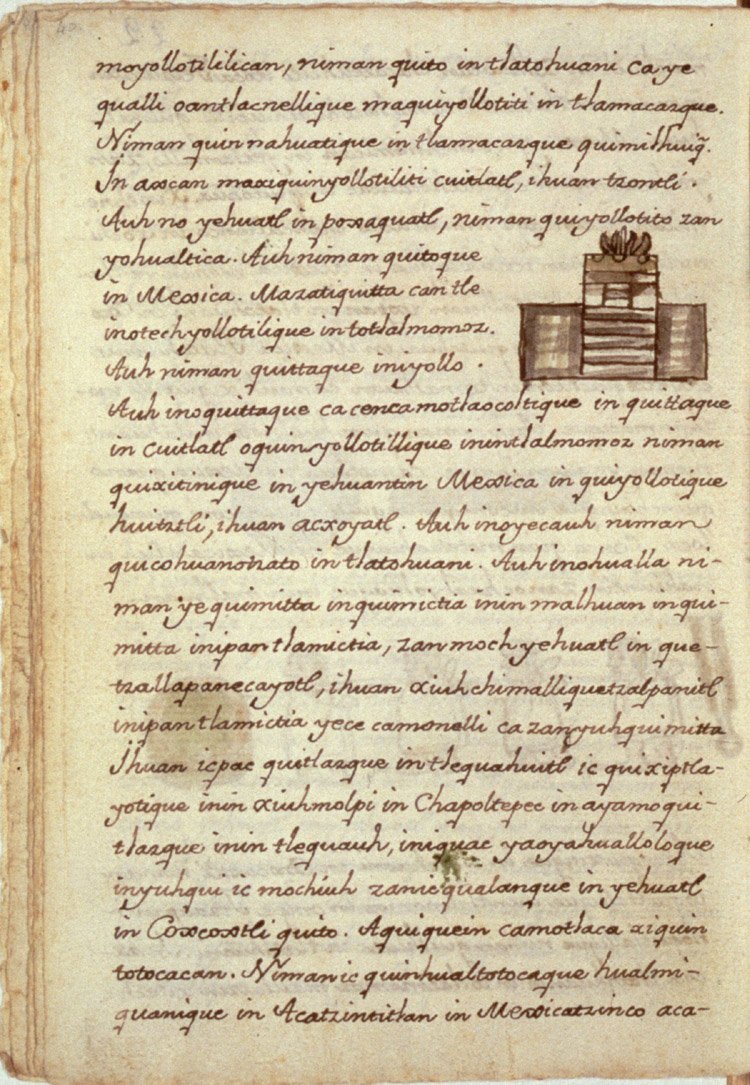 moyollotililican, niman quito in tlatohuani ca ye
qualli oantlacnellique maquiyollotiti in tlamacazque.
Niman quin nahuatique in tlamacazque quimilhuiq̃.
In axcan maxiquinyollotiliti cuitlatl, ihuan tzontli.
Auh no yehuatl in poxaquatl, niman quiyollotito zan
yohualtica. Auh niman quitoque
in Mexica. Mazatiquitta can tle
inotechyollotilique in totlalmomoz.
Auh niman quittaque iniyollo.
Auh inoquittaque ca cenca motlaocoltique in quittaque
in cuitlatl oquinyollotillique inintlalmomoz niman
quixitinique in yehuantin Mexica in quiyollotique
huitztli, ihuan acxoyatl. Auh inoyecauh niman
quicohuanotzato in tlatohuani. Auh inohualla ni-
man ye quimitta inquimictia inin malhuan inqui-
mitta inipan tlamictia, zan moch yehuatl in que-
tzallapanecayotl, ihuan xiuhchimalliquetzalpanitl
inipan tlamictia yece camonelli ca zanyuhquimitta
Ihuan icpac quitlazque in tlequahuitl ic quixiptla-
yotique inin xiuhmolpi in Chapoltepec in ayamoqui-
tlazque inin tlequauh, iniquac yaoyahualloloque
inyuhqui ic mochiuh zanic qualanque in yehuatl
in Coxcoxtli quito. Aquiquein camotlaca xiquin
totocacan. Niman ic quinhualtotocaque hualmi-
quanique in Acatzintitlan in Mexicatzinco aca-